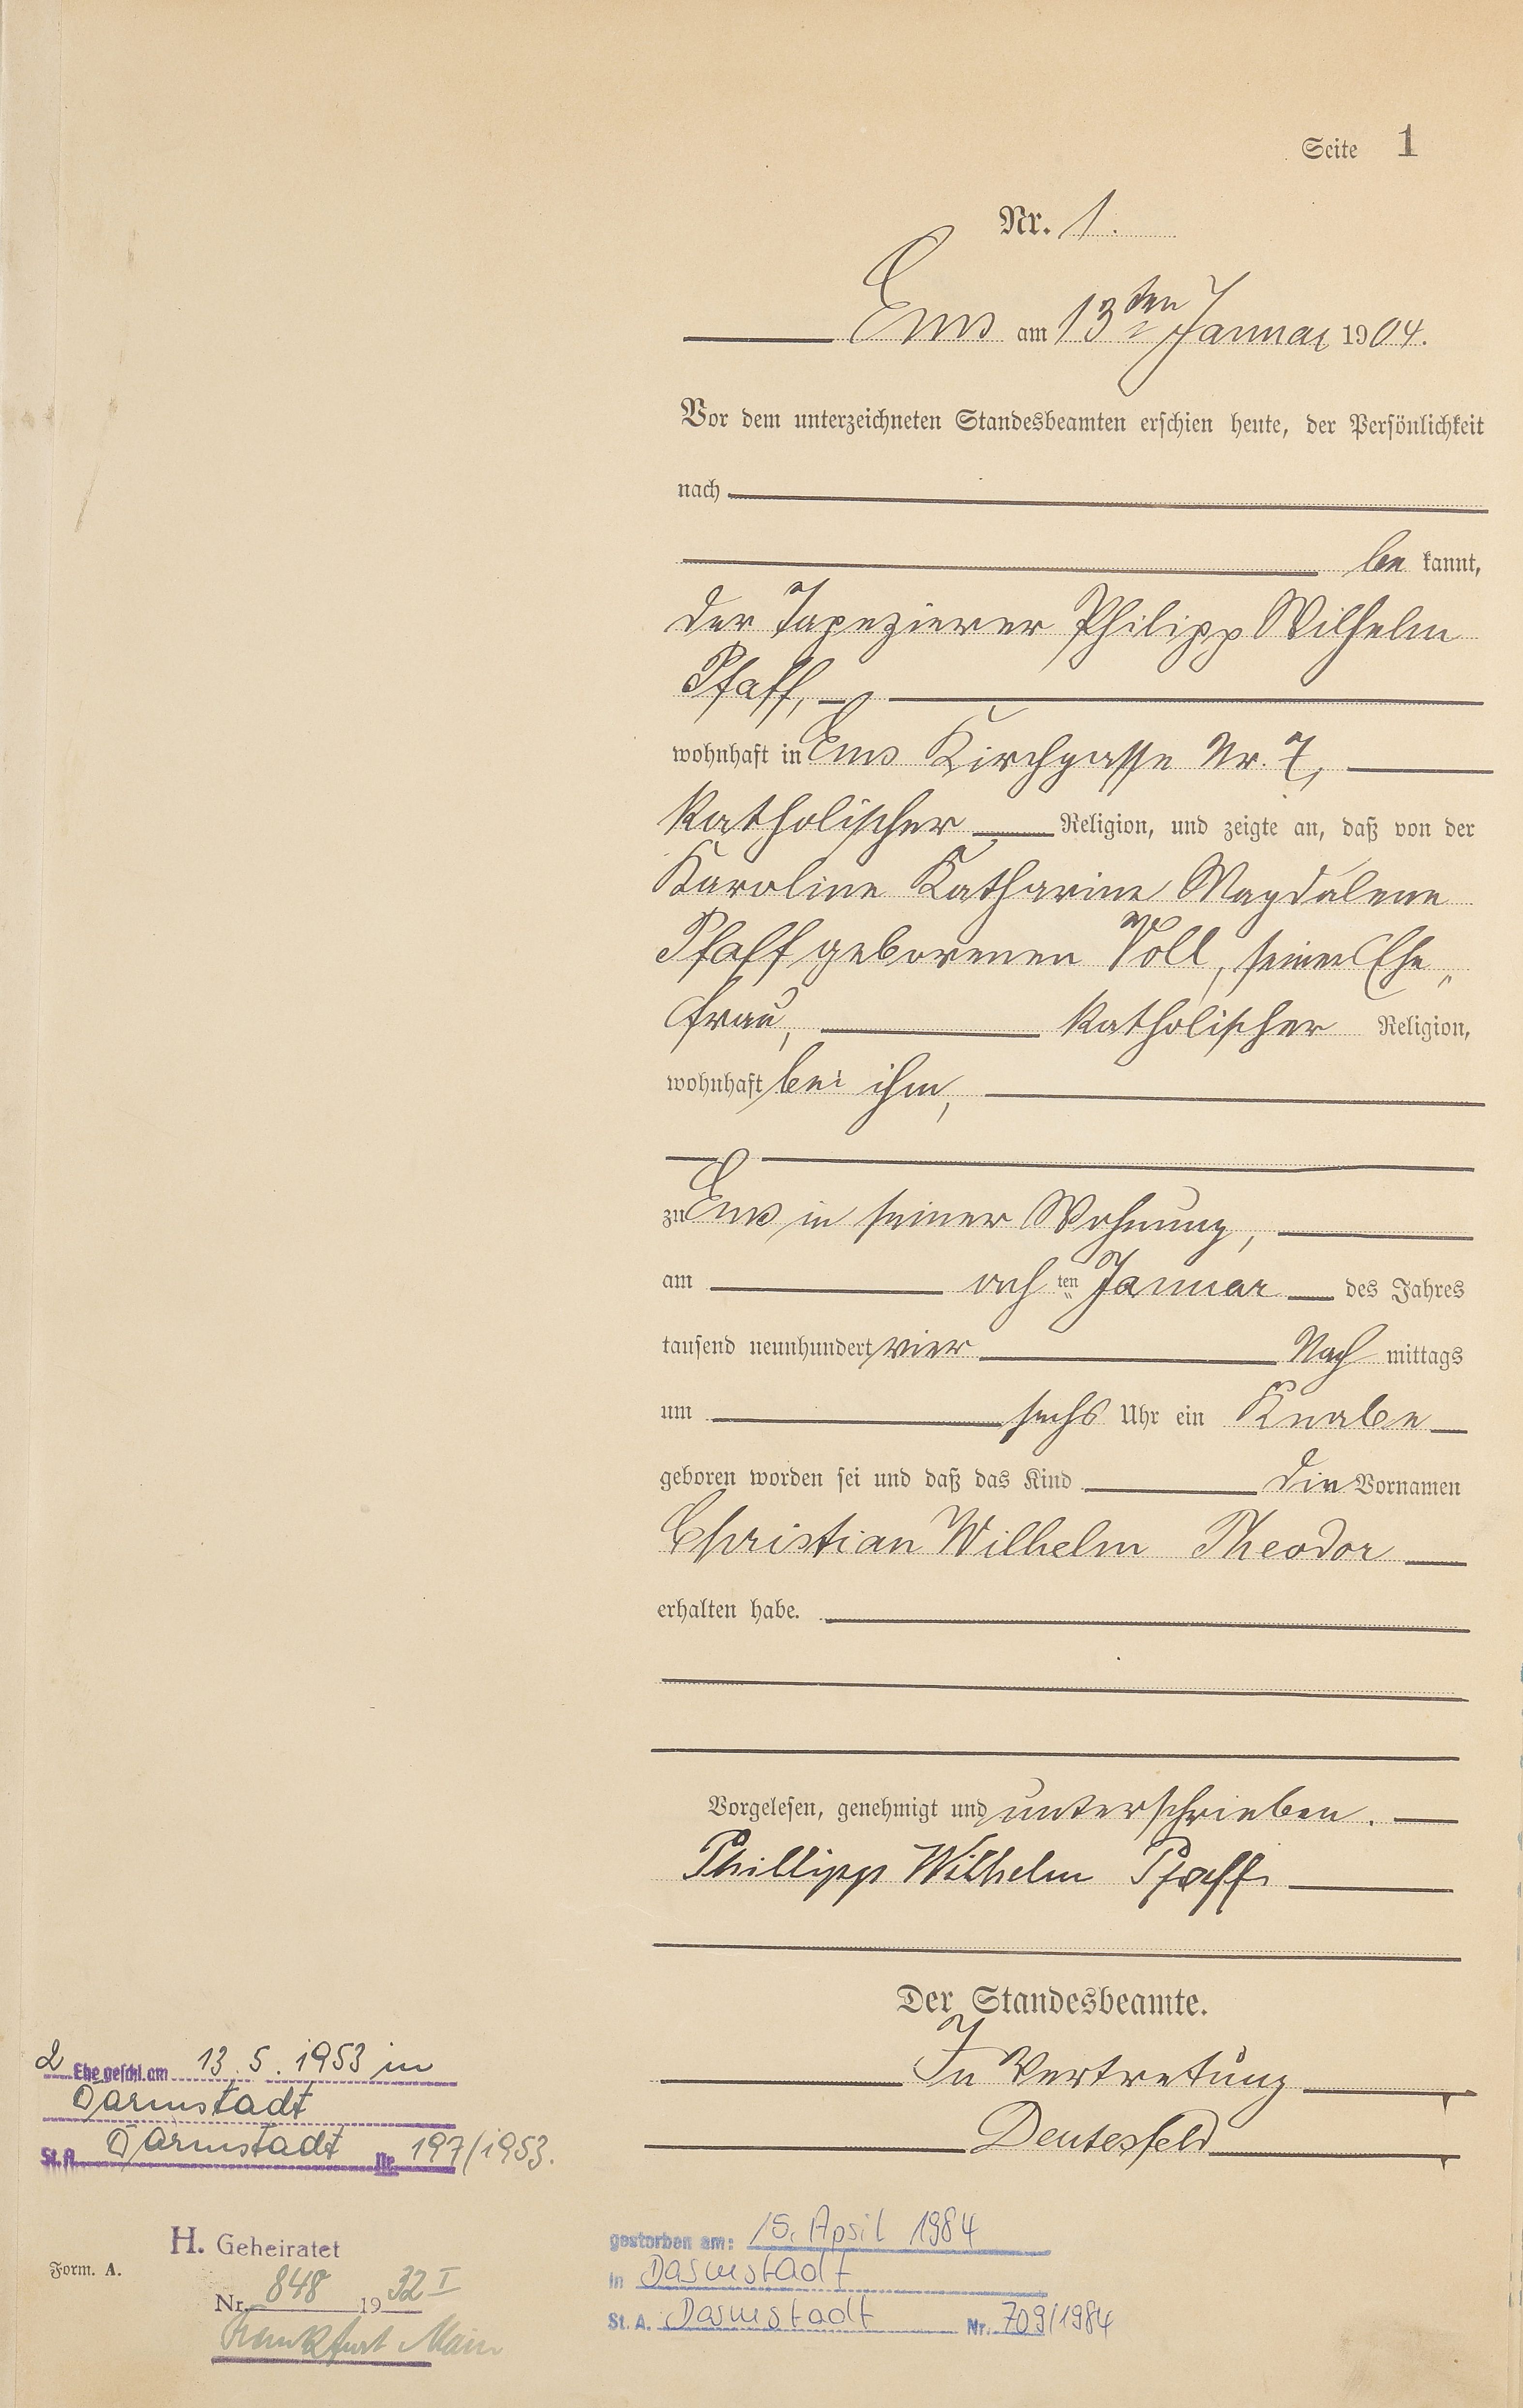 Seite 1
Nr. 1.
Ems am 13ten Januar 1904.
Vor dem unterzeichneten Standesbeamten erschien heute, der Persönlichkeit
nach
be kannt,
der Tapezierer Philipp Wilhelm
Pfaff,
wohnhaft in Ems Kirchgasse Nr. 7,
katholischer Religion, und zeigte an, daß von der
Karoline Katharine Magdalene
Pfaff geborenen Voll, seiner Ehe„
frau, katholischer Religion,
wohnhaft bei ihm,
zu Ems in seiner Wohnung,
am achten Januar des Jahres
tausend neunhundert vier Nach mittags
um sechs Uhr ein Knabe
geboren worden sei und daß das Kind die Vornamen
Christian Wilhelm Theodor
erhalten habe.
Vorgelesen, genehmigt und unterschrieben.
Phillipp Wilhelm Pfaff
Der Standesbeamte.
In Vertretung
Deutesfeld
2 Ehe geschl. am 13.5.1953 in
Darmstadt
St. A. Darmstadt Nr. 197/1953.
H. Geheiratet
Form. A.
Nr. 848 1932 I
Frankfurt Main
gestorben am: 15. April 1984
in Darmstadt
St. A. Darmstadt Nr. 709/1984